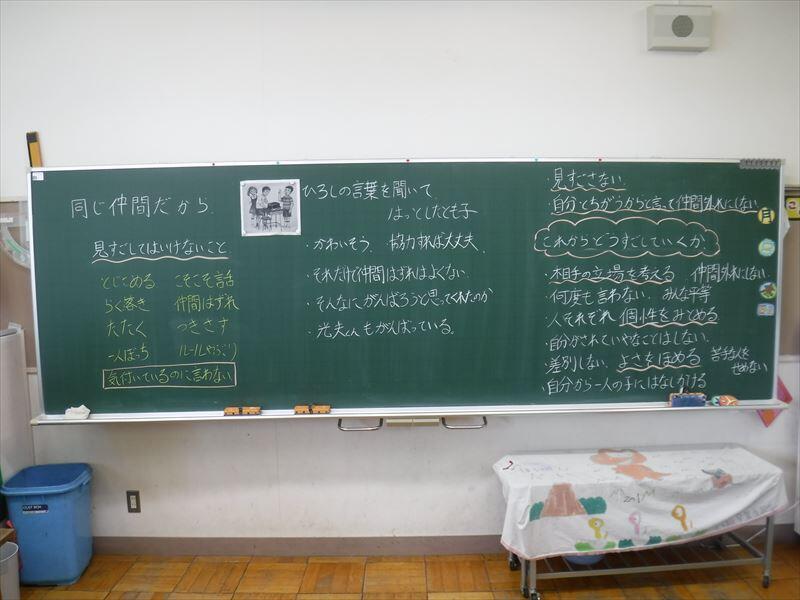 同じ仲間だから
見すごしてはいけないこと
とじこめる こそこそ話
らく書き 仲間はずれ
たたく つきさす
一人ぼっち ルールやぶり
気付いているのに言わない
ひろしの言葉を聞いて
はっとしたとも子
・かわいそう。協力すれば大丈夫。
・それだけで仲間はずれはよくない。
・そんなにがんばろうと思ってくれたのか
・光夫くんもがんばっている。
・見すごさない。
・自分とちがうからと言って仲間外れにしない
これからどうすごしていくか
・相手の立場を考える 仲間外れにしない
・何度も言わない。みんな平等
・人それぞれ 個性をみとめる
・自分がされていやなことはしない。
・差別しない。よさをほめる 苦手な人をせめない
・自分から一人の子にはなしかける
月